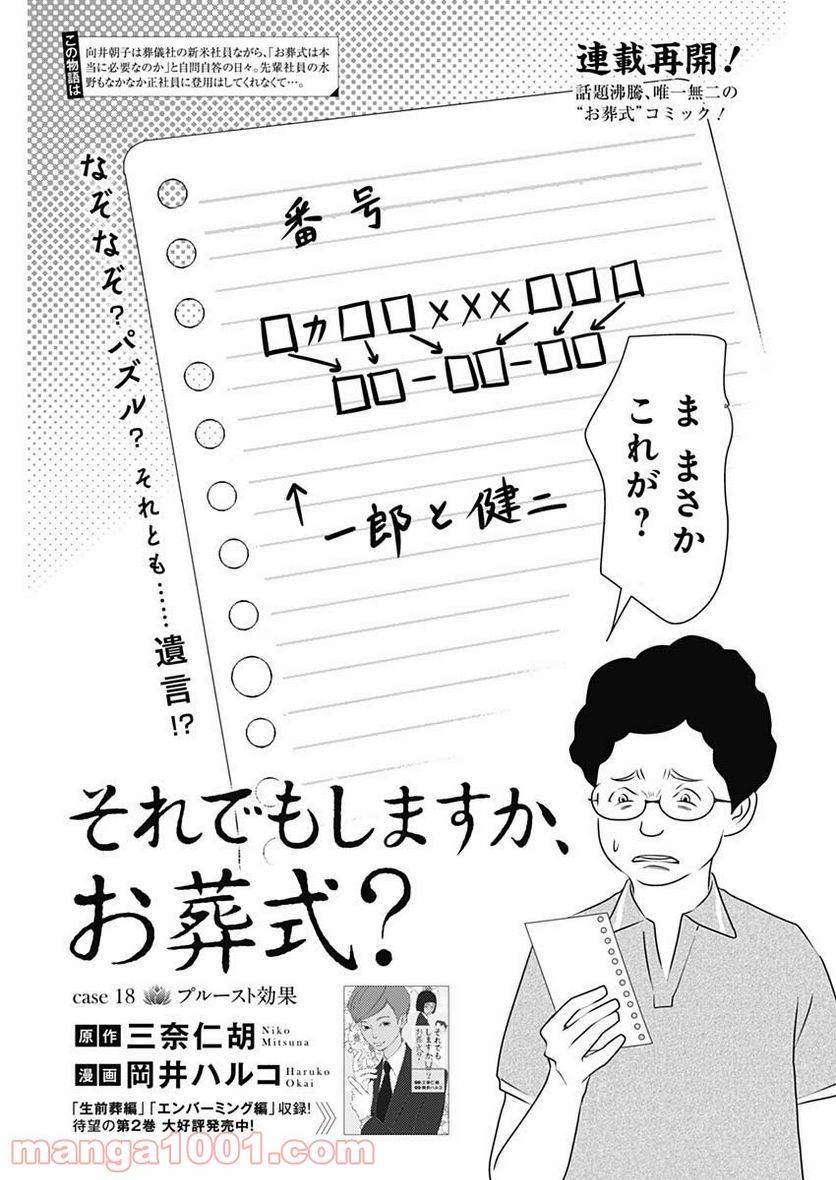 連載再開！
話題沸騰、唯一無二の
“お葬式”コミック！
この物語は
向井朝子は葬儀社の新米社員ながら、「お葬式は本
当に必要なのか」と自問自答の日々。先輩社員の水
野もなかなか正社員に登用はしてくれなくて…。
番号
□カ□□×××□□□
□□－□□－□□
↑
一郎と健二
ま まさか
これが？
なぞなぞ？パズル？それとも……遺言!?
それでもしますか、
お葬式？
case 18 プルースト効果
原作 三奈仁胡 Niko Mitsuna
漫画 岡井ハルコ Haruko Okai
それでも
しますか、
お葬式？
「生前葬編」「エンバーミング編」収録！
待望の第2巻 大好評発売中！
manga1001.com